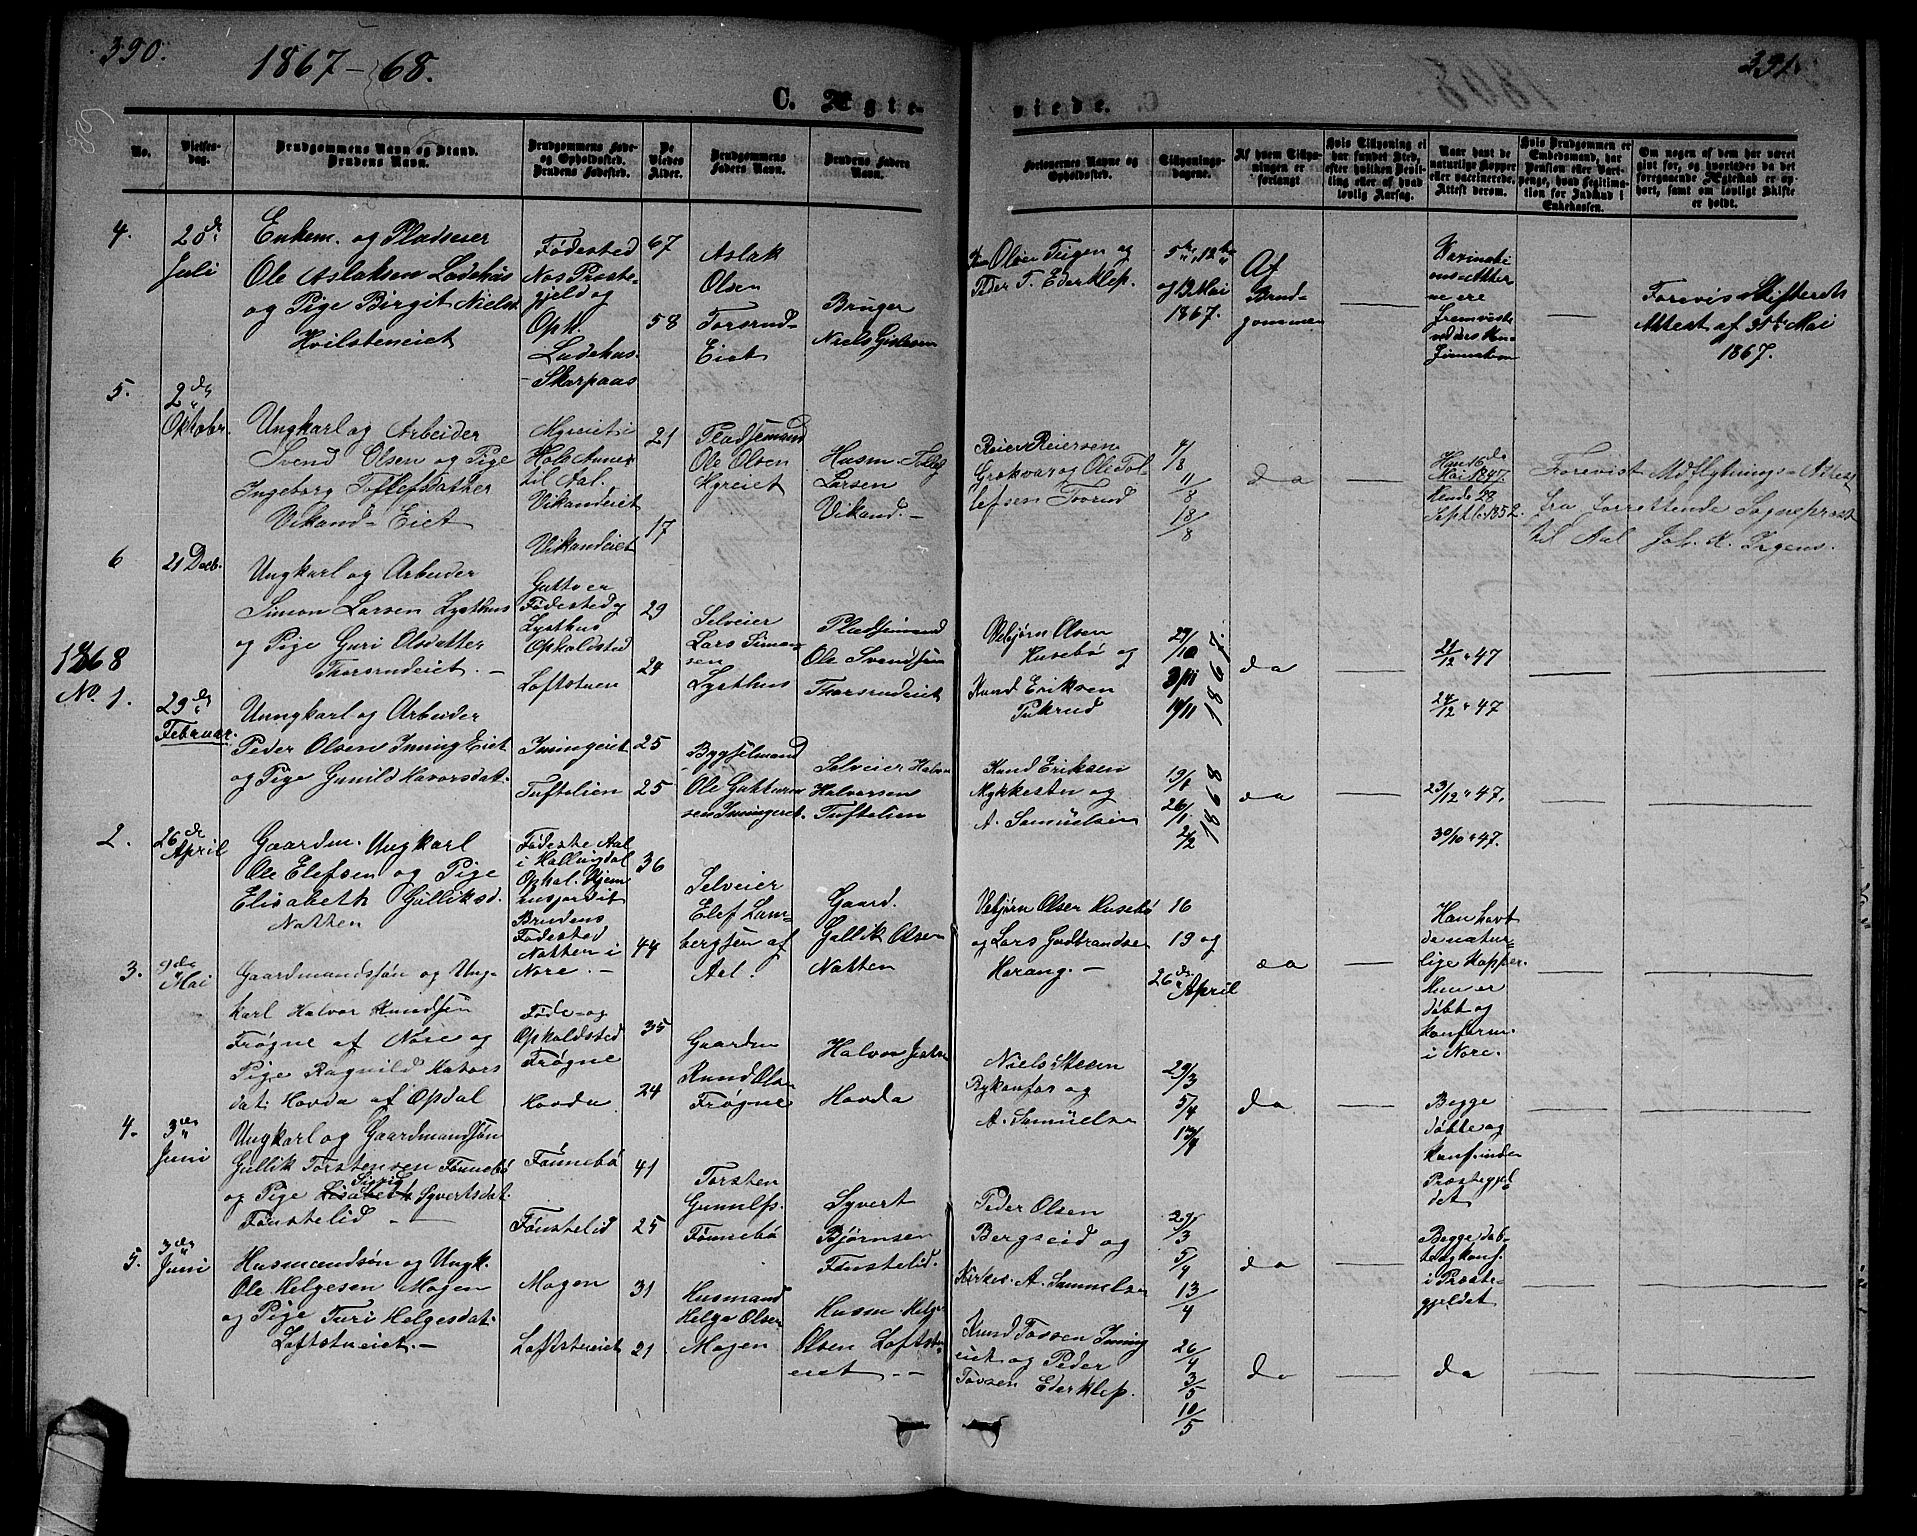 390.
1867-68.
C. Ægte-
No.
Vielses-
dag.
Brudgommens Navn og Stand.
Brudens Navn.
Brudgommens Føde-
og Opholdssted.
Brudens Fødested.
De
Viedes
Alder.
Brudgommens
Faders Navn.
Brudens Faders
Navn.
4.
20de
Juli
Enkem. og Pladseier
Ole Aslaksen Ladehus
og Pige Birgit Niels
Hvilsteneiet
Fødested
Nos Præste-
gjeld og
Oph.
Ladehus.
-Skarpaas
67
58
Aslak
Olsen
Torsrud-
Eiet
Bruger
Niels
5.
2den
Oktobr.
Ungkarl og Arbeider
Svend Olsen og Pige
Ingeborg Toflefsdatter
Vikand-Eiet
Myreiet i
Hols Annex
til Aal.
Vikandeiet
Vikandeiet
21
17
Pladsemand
Ole Olsen
Myreiet
Husm. Tollef
Larsen
Vikand.-
6
21 Decb.
Ungkarl og Arbeider
Simon Larsen Lysthus
og Pige Guri Olsdatter
Thorsrudeiet.-
Fødested og
Lysthus
Opholdsted
Loftstuen
29
24
Selveier
Lars Simon-
sen
Lysthus
Pladsemand
Ole Svendsen
Thorsrudeiet
1868
No. 1.
29de
Februar.
Unngkarl og Arbeider
Peder Olsen Inning Eiet
og Pige Gunild Havorsdat.
Inningeiet
Tuftelien
25
25
Bygselmand
Ole
sen Inningeiet.
Selveier Halvor
Halvorsen
Tuftelien
2.
26de
April
Gaardm. Ungkarl
Ole Elefsen og Pige
Elisabeth Gulliksd.
Natten
Fødeste Aal
i Hallingdal
Ophol.
Brudens
Fødested
Natten i
Nore.-
36
44
Selveier
Elef Lam-
bergsen af
Aal.
Gaard.
Gullik Olsen
Natten
3.
9de
Mai
Gaardmandssøn og Ung-
karl Halvor Knudsen
Frøgne af Nore og
Pige Ragnild Havors
dat. Hovda af Opdal
Føde-og
Opholdsted
Frøgne
Hovda
35
24
Gaardm
Knud Olsen
Frøgne
Halvor
Hovda
4.
3die
Juni
Ungkarl og Gaardmandsøn
Gullik Torstensen Fønnebø
Sissig
og Pige Lisabeth Syvertsdat.
Fønstelid -
Fønnebø
Fønstelid
41
25
Torsten
Gunulfs.
Fønnebø
Syvert
Bjørnsen
Fønstelid.
5.
3die
Juni
Husmandsøn og Ungk.
Ole Helgesen Mogen
og Pige Turi Helgesdat.
Loftstueiet.-
Mogen
Loftstueiet
31
21
Husmand
Helge Olsen
Mogen
Husm. Helge
Olsen Loftstu-
eiet.-
391.
viede.
Forlovernes Navne og
Opholdssted.
Tillysnings-
dagene.
Af hvem Tillys-
ningen er
forlangt
Hvis Tillysning ei
har fundet Sted,
efter hvilken Bevil-
ling eller af hvad
lovlig Aarsag.
Naar havt de
naturlige Kopper
eller vaccinerede.
Attest derom.
Hvis Brudgommen er
Embedsmand, har
Pension eller Vart-
penge, hvad Legitima-
tion for Indskud i
Enkekassen.
Om nogen af dem har været
gift før, og hvorledes da det
foregaaende Ægteskab er op-
hørt, samt om lovligt Skifte
er holdt.
Olsen Teigen og
Peder T. Ederklep.
5te, 12te
og 13. Mai
1867.
Af
Brud-
gommen
Vaxinati
ons Atte
ne ere
fremviste
Forevis Skifterets
Attest af 31te Mai
1867.
Reier Reiersen
Grøkvar og Ole Tol
lefsen Tovrud
4/8
11/8
18/8
da
Han 16de
Mai 1847.
Hende 28
Septb. 1852.
Forevist Udflytnings-Attest
fra forrettende Sogneprest
til Aal Joh. K. Irgens.
Vebjørn Olsen
Husebø og
Knud Eriksen
Tukrud
27/10
3/11
10/11
1867.
da
21/12 47
24/12 47
Knud Eriksen
Mykkestu og
A. Samuelsen
19/1
26/1
2/2
1868
da
23/12 47.
30/10 47.
Vebjørn Olsen Husebø
og Lars Gudbrandsen
Herang.-
16
19 og
26de
April
da
Han havt
de natur-
lige Kopper
Hun er
døbt og
konfirm.
i Nore.
Niels Steen
Bykanfor og
A. Samuelsen
29/3
5/4
13/4
da
Begge
døbte og
konf. inden
Præstegjel
det
Peder Olsen
Bergseid og
Kirkes. A. Samuelsen
29/3
5/4
13/4
da
Begge døb-
te og konf.
i Præste-
gjeldet
Knud Tovsen Inning
eiet og Peder
Tovsen Ederklep.
26/4
3/5
10/5
do
da